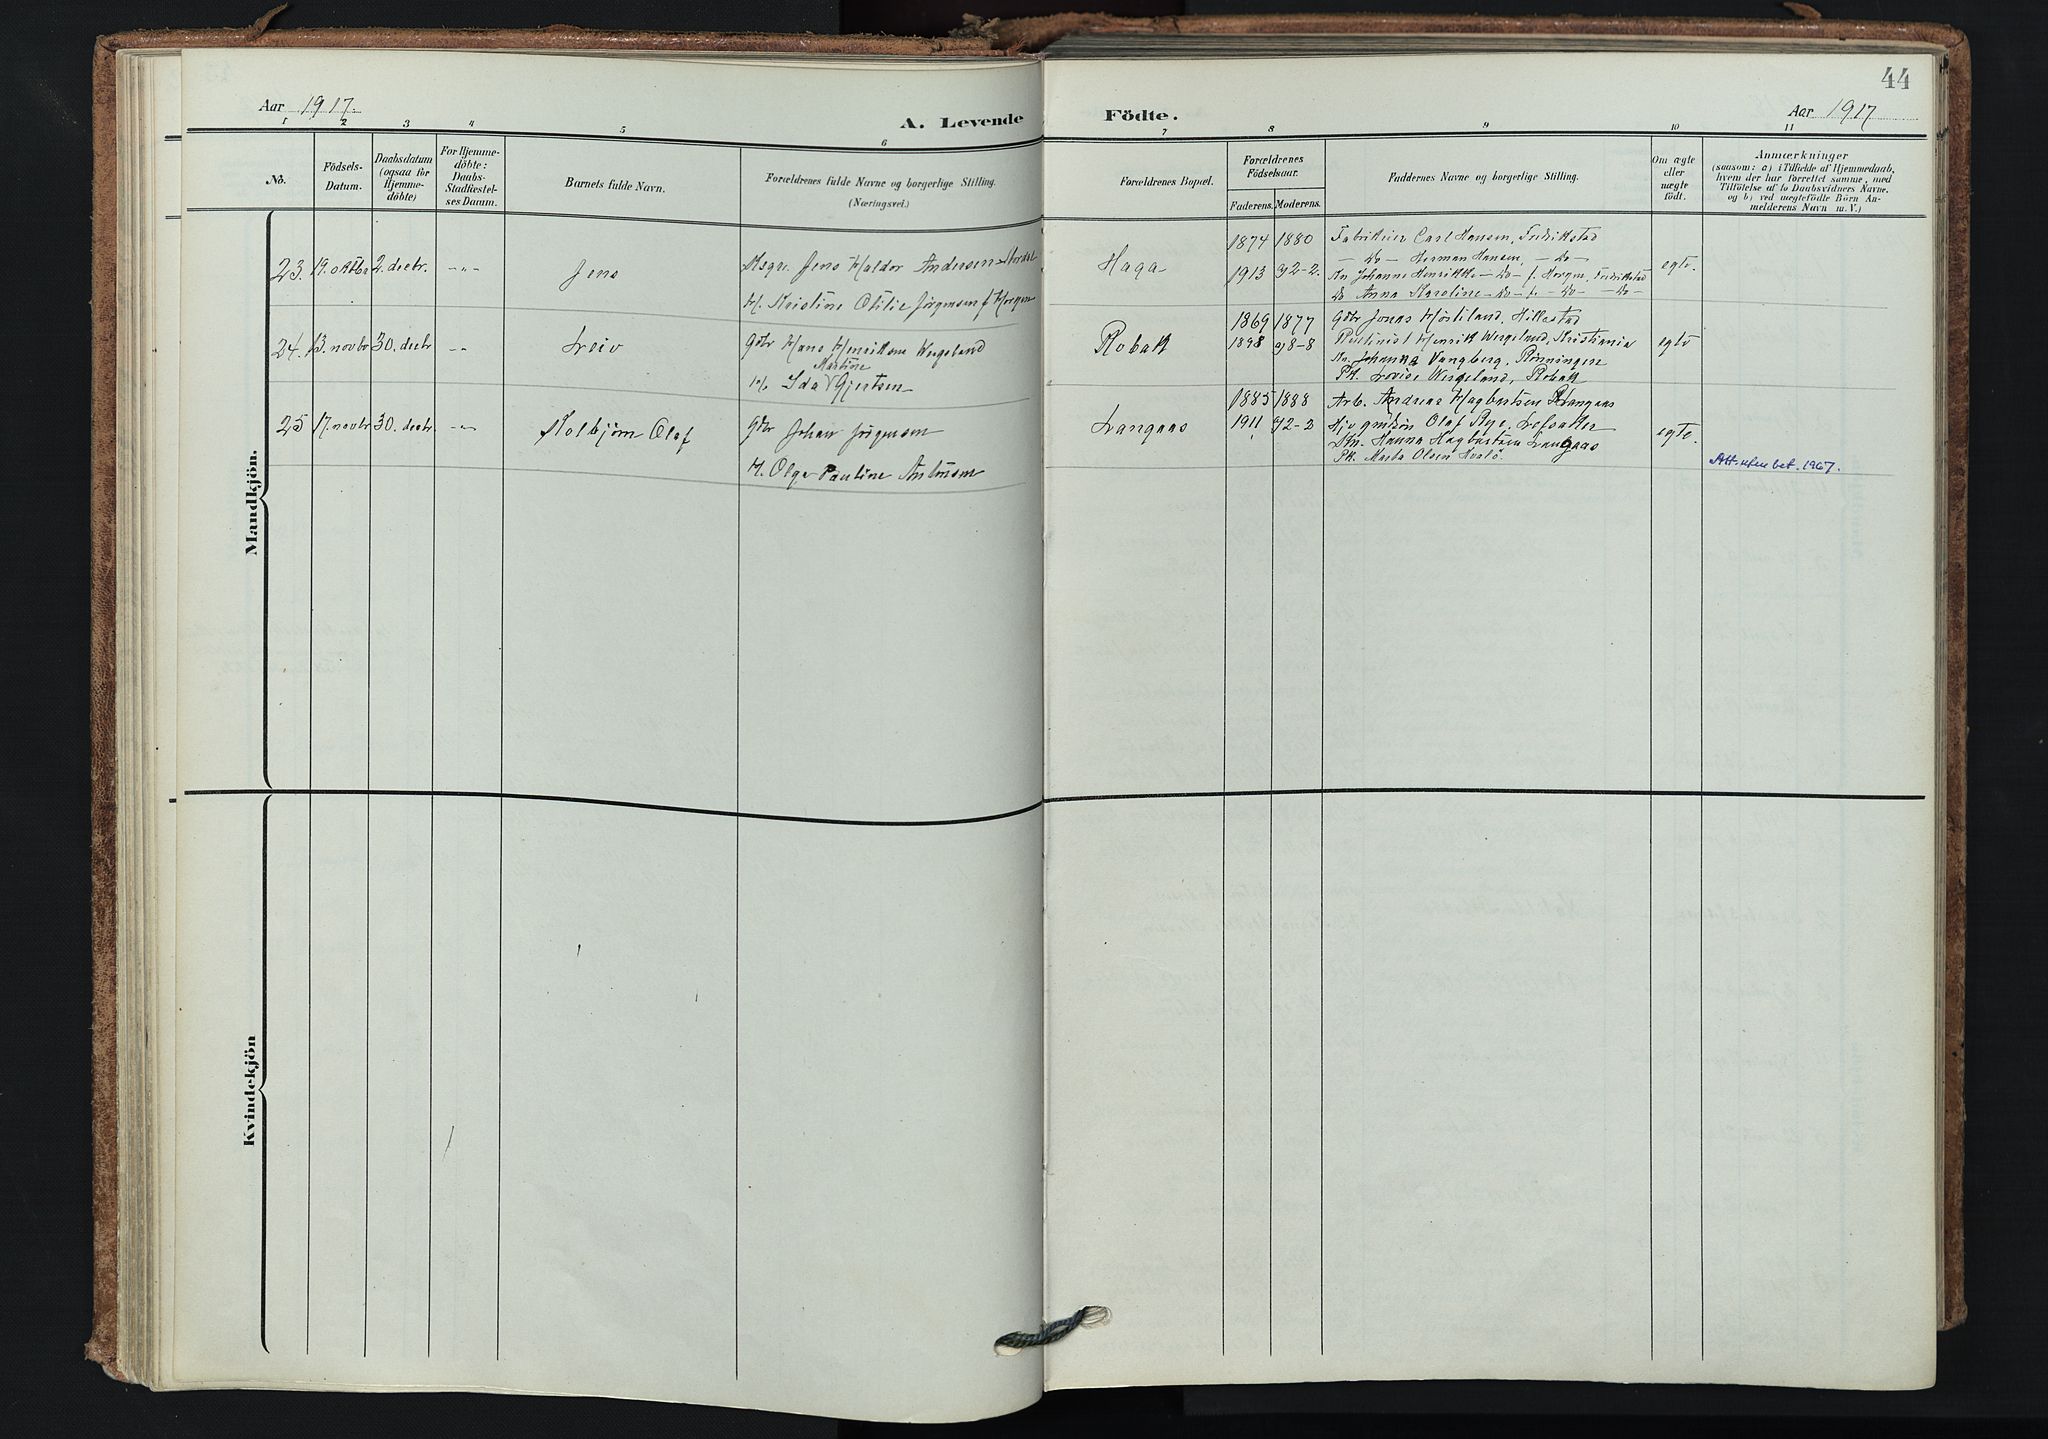 44
Aar 1917.
A. Levende Födte.
Aar 1917
1 2 3 4 5 6 7 8 9 10 11
No.
Födsels-Datum.
Daabsdatum (ogsaa for Hjemme-döbte)
For Hjemme-döbte: Daabs-Stadfæstel-ses Datum.
Barnets fulde Navn.
Forældrenes fulde Navne og borgerlige Stilling. (Næringsvei.)
Forældrenes Bopæl.
Forældrenes Födselsaar.
Faderens. Moderens.
Faddernes Navne og borgerlige Stilling.
Om ægte eller uægte födt.
Anmærkninger
(saasom: a) i Tilfælde af Hjemmedaab, hvem der har forrettet samme, med Tilföielse af to Daabsvidners Navne. og b) ved uægtefödte Börn Anmelderens Navn m. V.)
Mandkjön.
23. 19. oktbr 2. decbr. -"- Jens
Jens Haldor Andersen
H. Kristine Otilie Jörgensen f. Horgen
Haga
1874 1880
1913 g2-2.
Fabrikeier Carl Hansen, Fredrikstad
— do — Herman Hansen, — do —
Fru Johanne Henrikke — do — f. Horgen, Fredrikstad
do Anna Karoline — do — f. — do — — do —
egte.
24. 13. novbr 30. decbr -"- Leiv
Gbr Hans Henriksen Wergeland
H. Ida Martine Gjertsen
Robak
1869 1877
1898 g8-8
Gbr Jonas Hillestad
Henrik Wergeland, Kristiania
Fru Johanna Vangberg, Rönningen
Pk. Lovise Wergeland, Robak
egte
25 17. novbr 30. decbr. -"- Kolbjörn Olaf
Gbr Johan Jörgensen
H. Olga Pauline Antonsen
Langaas
1885 1888
1911 g2-2
Arb. Andreas Hagbartsen Langaas
Olaf Rye, Lefsaker
Hanna Hagbartsen Langaas
Pk. Marta Olsen
egte.
Att. uten bet. 1967.
Kvindekjön